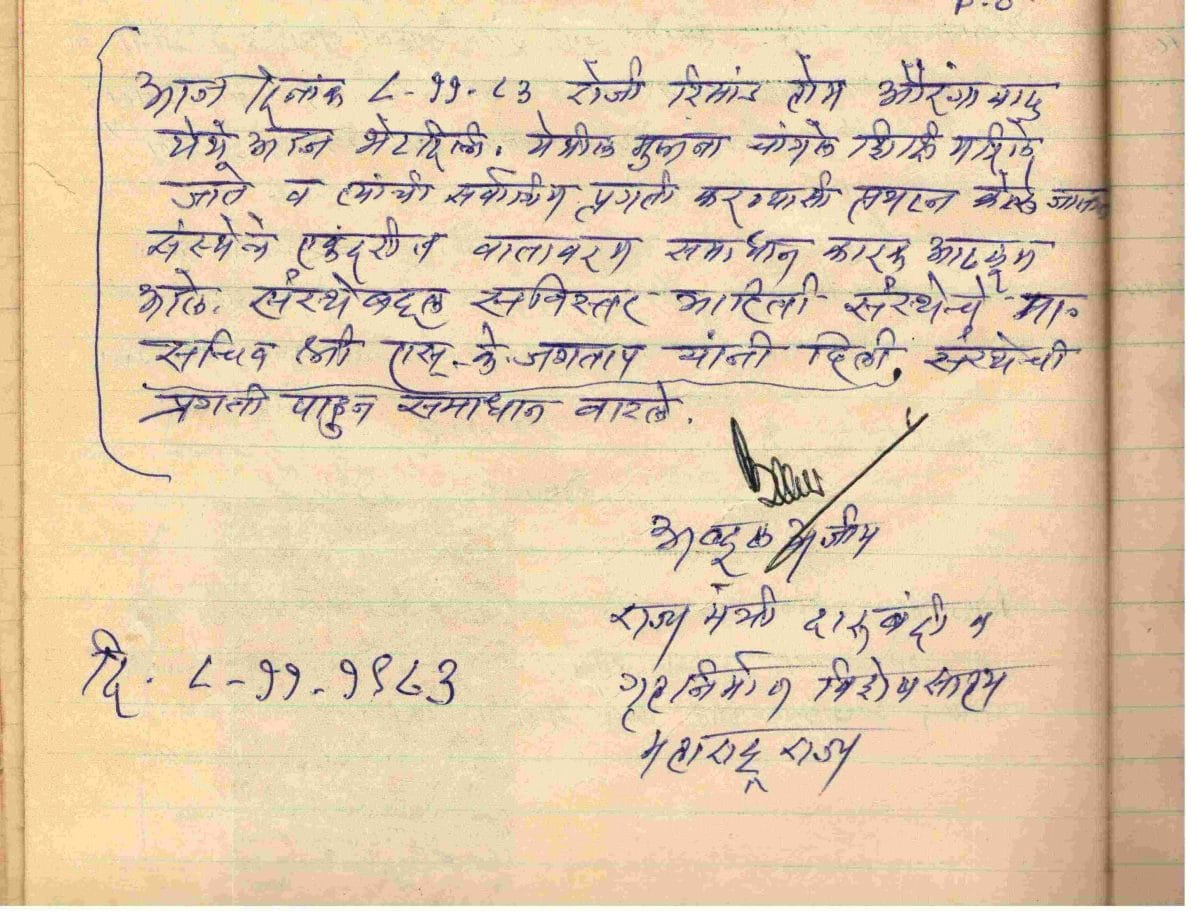 P.O
आज दिनांक ८-११-८३ रोजी रिमांड होम औरंगाबाद
येथे आज भेट दिली. येथील मुलांना चांगले शिक्षण दिले
जाते व त्यांची सर्वांगिण प्रगती करण्याची प्रयत्न केले जातात
संस्थेचे एकंदरीत वातावरण समाधान कारक आढळून
आले. संस्थेबद्दल सविस्तर माहिती संस्थेचे मा.
सचिव श्री एस. के. जगताप यांनी दिली. संस्थेची
प्रगती पाहुन समाधान वाटले.
अब्दुल अजीम
राज्य मंत्री दारुबंदी व
दि. ८-११-१९८३
गृहनिर्माण विशेष सहाय्य
महाराष्ट्र राज्य